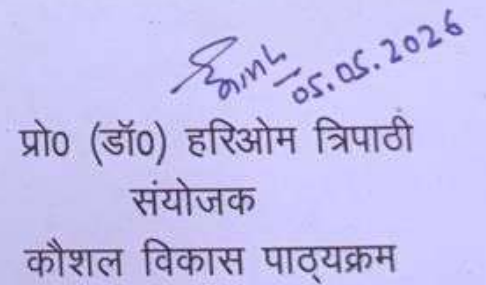 05.05.2026
प्रो0 (डॉ0) हरिओम त्रिपाठी
संयोजक
कौशल विकास पाठ्यक्रम